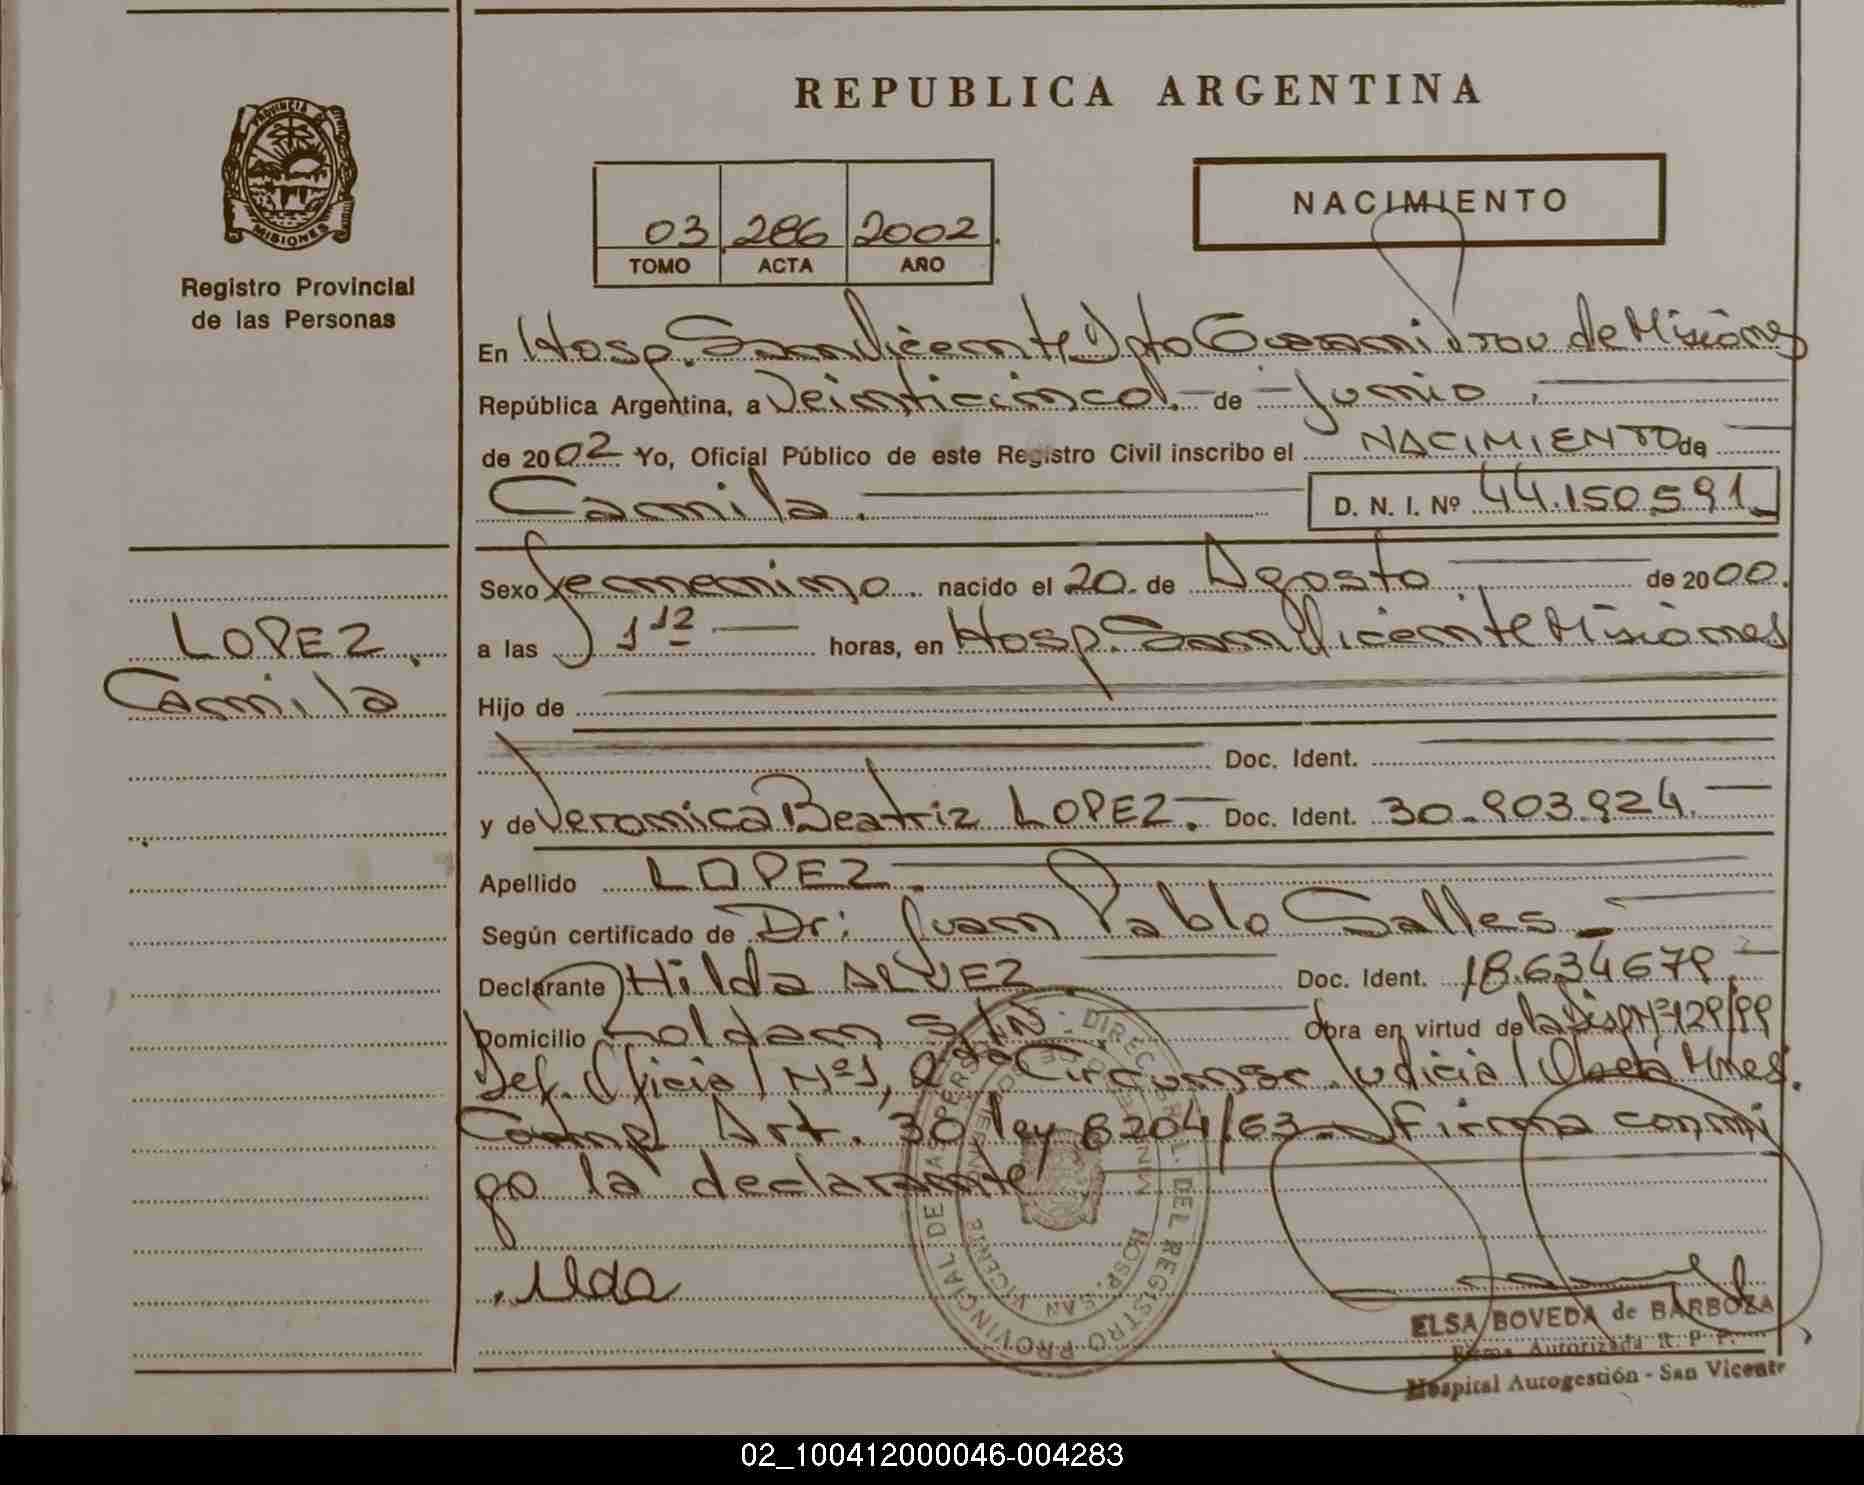 REPUBLICA ARGENTINA
PROVINCIA DE
MISIONES
Registro Provincial
de las Personas
03 286 2002
TOMO ACTA AÑO
NACIMIENTO
En Hosp. San Vicente Dpto Guarani Prov de Misiones
República Argentina, a Veinticinco de Junio
de 2002 Yo, Oficial Público de este Registro Civil inscribo el NACIMIENTO de
Camila. D. N. I. Nº 44.150.591
Sexo femenino nacido el 20 de Agosto de 2000.
a las 1 12 horas, en Hosp. San Vicente Misiones
LOPEZ
Camila
Hijo de
Doc. Ident.
y de Veronica Beatriz LOPEZ. Doc. Ident. 30.903.924.
Apellido LOPEZ.
Según certificado de Dr: Juan Pablo Salles
Declarante Hilda ALVEZ Doc. Ident. 18.634679.
Domicilio S/N. Obra en virtud de la Disp Nº 129/99
Def. Oficial Nº1, 2da Circunscr. Judicial Oberá Mnes.
Comp Art. 30 ley 8204/63. Firma conmi
go la declarante
ELSA BOVEDA de BARBOZA
Firma Autorizada R. P. P.
Hospital Autogestión - San Vicente
DIREC. GRAL. DEL REGISTRO PROVINCIAL DE LAS PERSONAS
HOSP. SAN VICENTE
02_100412000046-004283